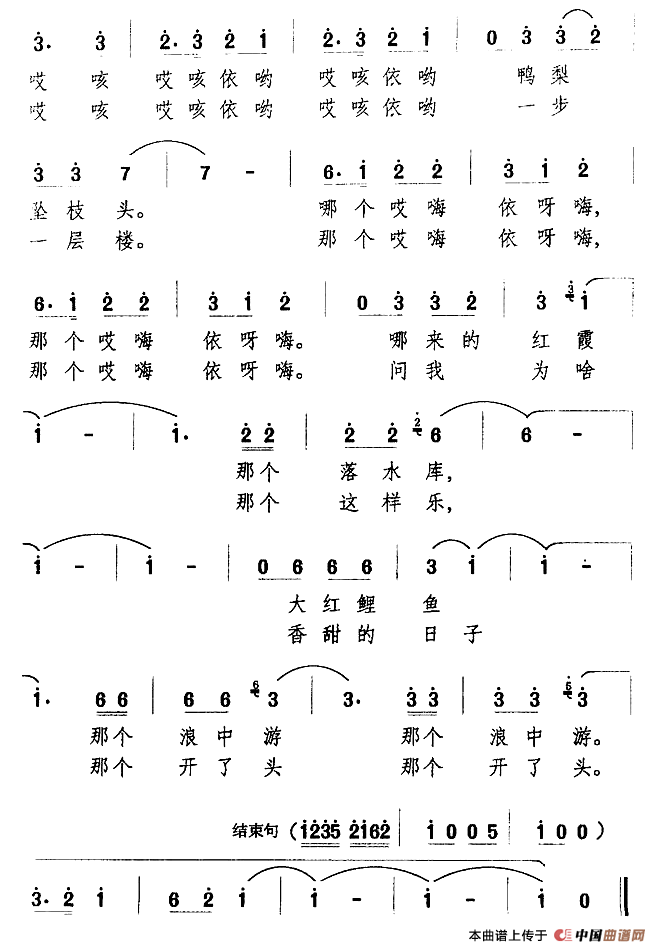 3· 3 | 2·3 2 1 | 2·3 2 1 | 0 3 3 2
哎 咳 哎咳依哟 哎咳依哟 鸭梨
哎 咳 哎咳依哟 哎咳依哟 一步
3 3 7 | 7 - | 6·1 2 2 | 3 1 2
坠枝头。 哪个哎嗨 依呀嗨,
一层楼。 那个哎嗨 依呀嗨,
6·1 2 2 | 3 1 2 | 0 3 3 2 | 3 3 1
那个哎嗨 依呀嗨。 哪来的 红霞
那个哎嗨 依呀嗨。 问我 为啥
1 - | 1· 2 2 | 2 2 2 6 | 6 -
那个 落水库,
那个 这样乐,
1 - | 1 - | 0 6 6 6 | 3 1 | 1 -
大红鲤 鱼
香甜的 日子
1· 6 6 | 6 6 6 3 | 3· 3 3 | 3 3 5 3
那个 浪中游 那个 浪中游。
那个 开了头 那个 开了头。
结束句 (1235 2162 | 1 0 0 5 | 1 0 0)
3·2 1 | 6 2 1 | 1 - | 1 - | 1 0 ‖
本曲谱上传于 中国曲谱网